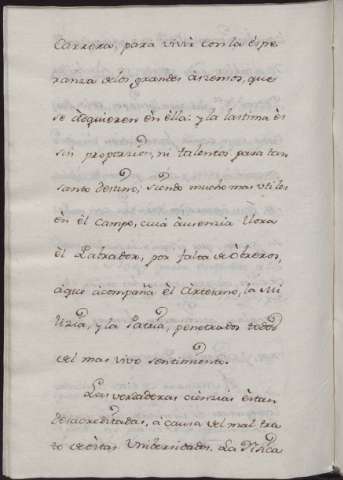 Carrera, para vivir con la espe
ranza de los grandes àscensos, que
se àdquieren èn èlla: y la lastima ès
sin proporcion, ni talentos para tan
santo destino, siendo mucho mas utiles
èn èl Campo, cuià àusencia llora
èl Labrador, por falta de òbreros,
àque àcompaña èl Artesano, la Mi
lizia, y la Patria, penetrados todos
del mas vivo sentimiento.
Las verdaderas ciencias èstan
desacreditadas, à causa del mal tra
to de èstas Universidades. La Fisica